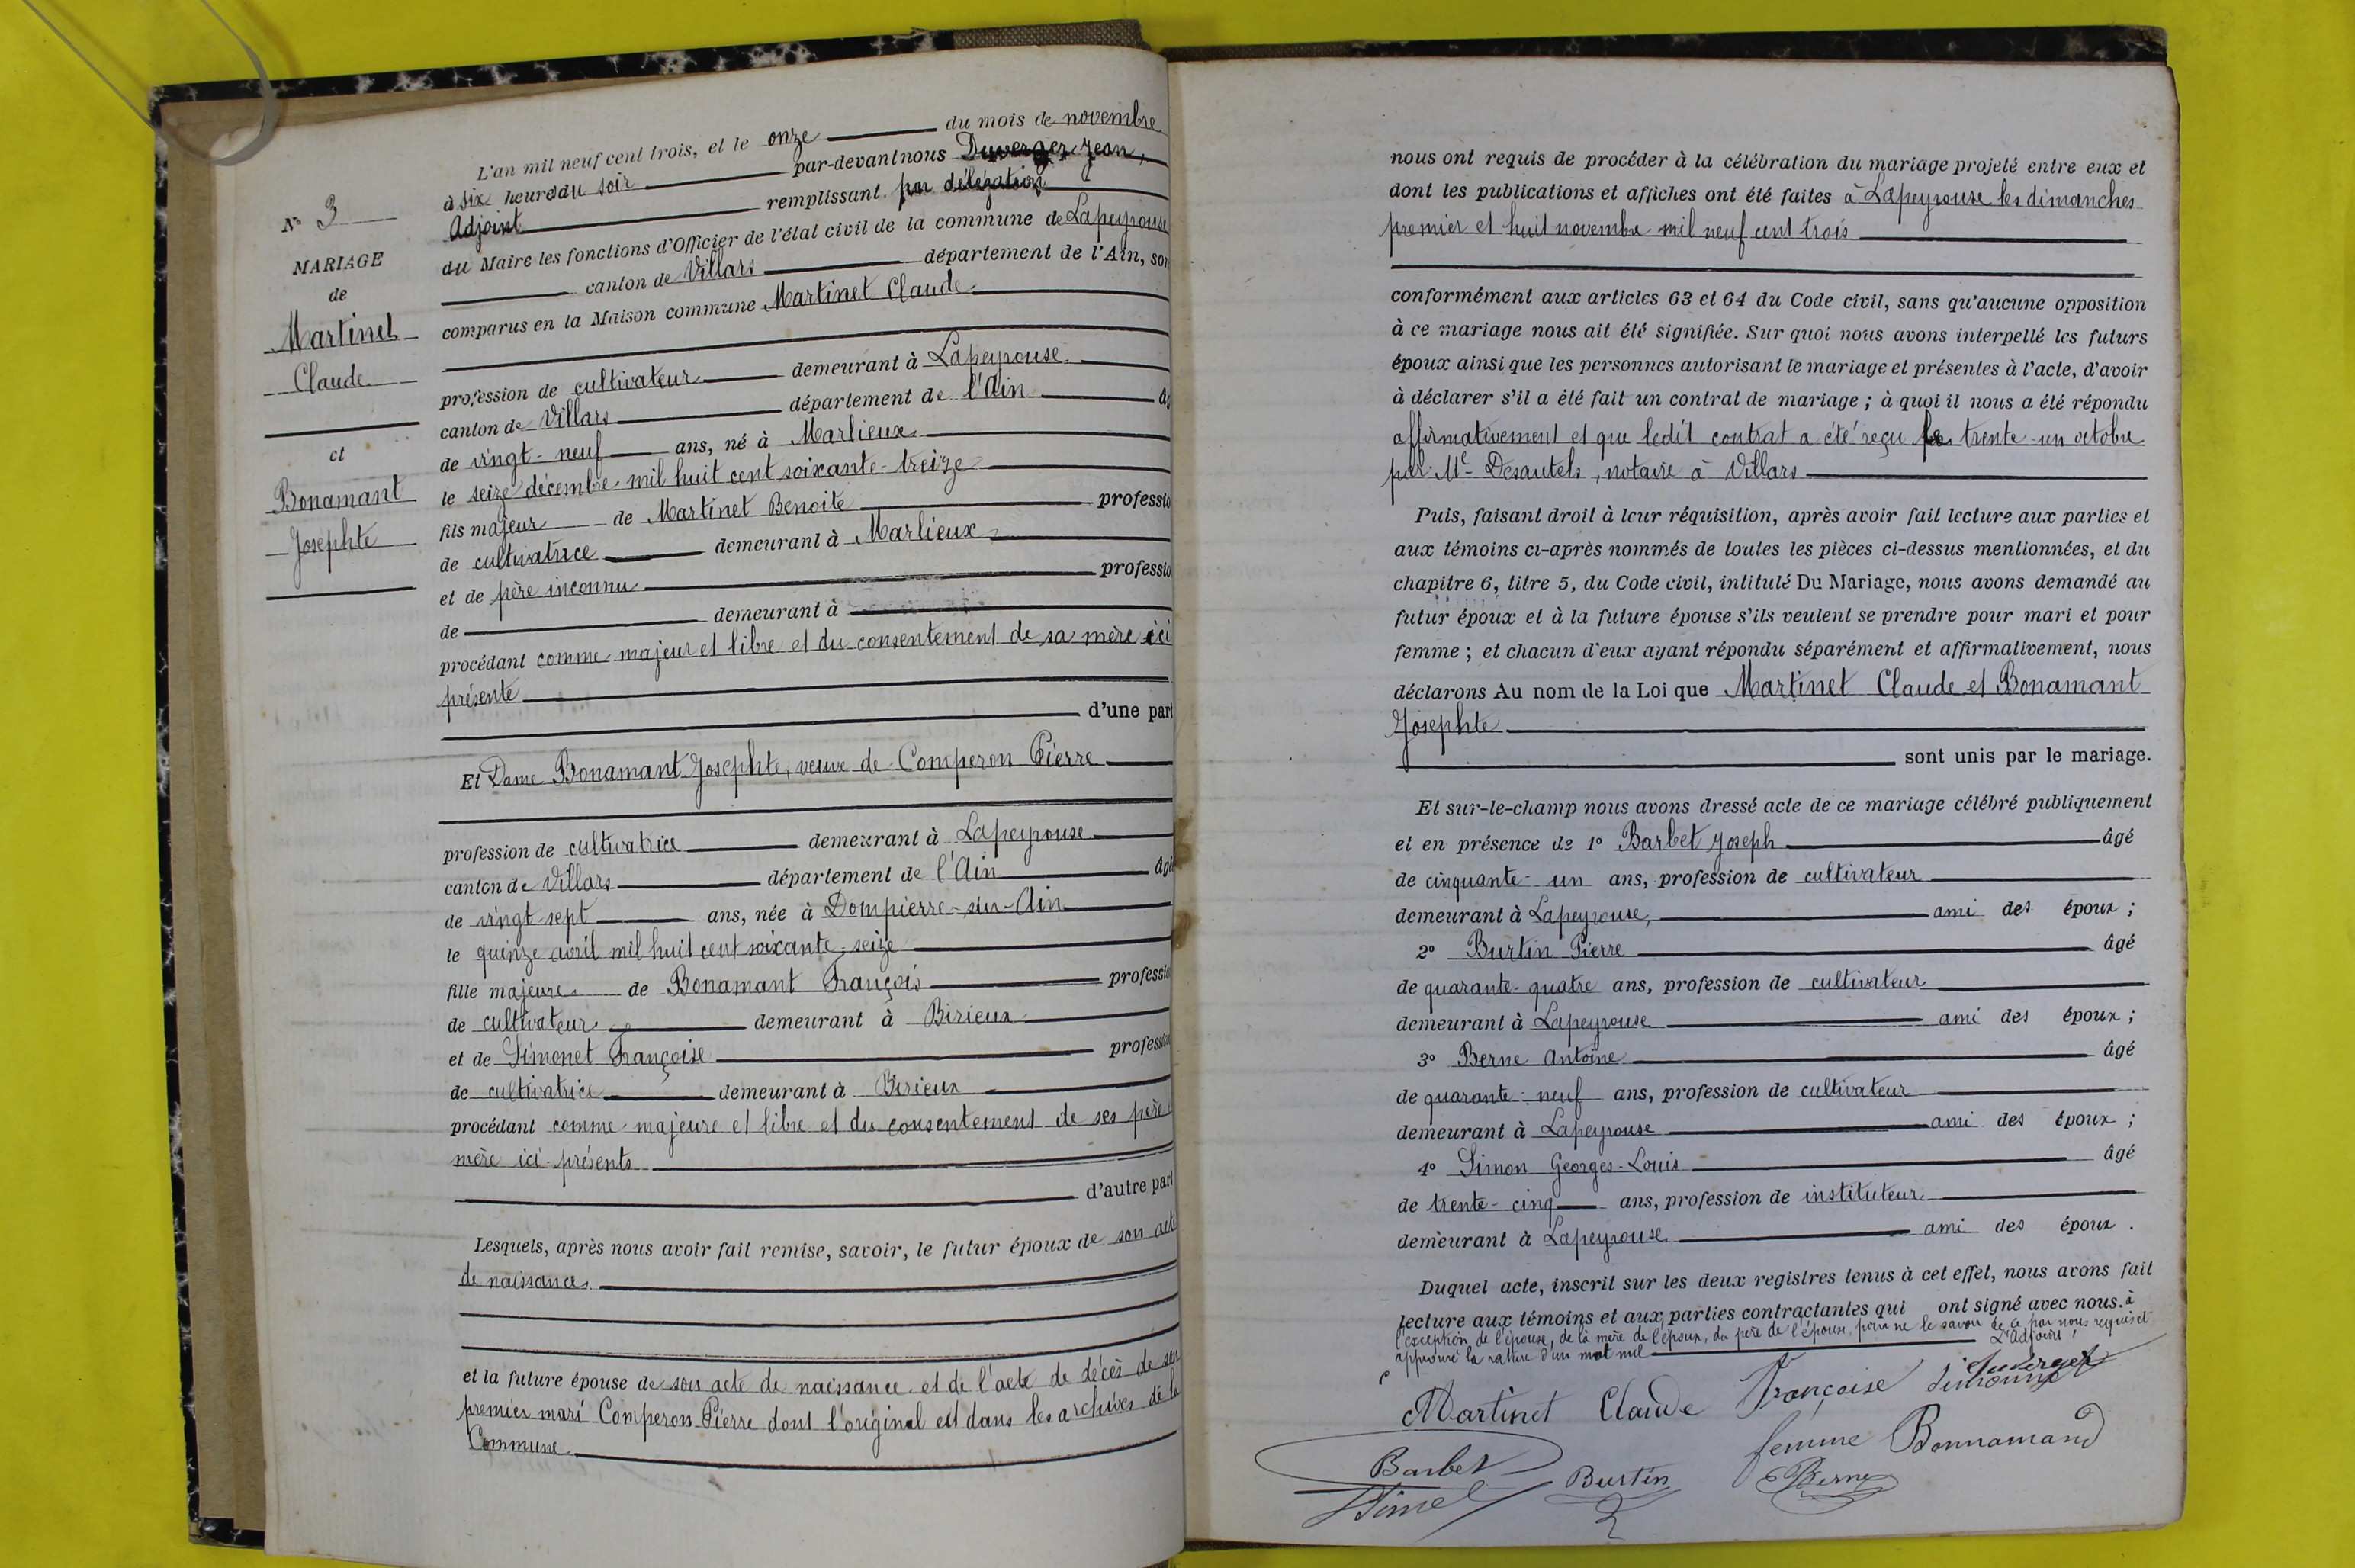 N° 3
MARIAGE
de
Martinet
Claude
et
Bonamant
Josephte
L'an mil neuf cent trois, et le onze du mois de novembre
à six heures du soir par-devant nous Duverger Jean,
Adjoint remplissant par délégation
du Maire les fonctions d'Officier de l'état civil de la commune de Lapeyrouse
canton de Villars département de l'Ain, son
comparus en la Maison commune Martinet Claude
profession de cultivateur demeurant à Lapeyrouse
canton de Villars département de l'Ain âg
de vingt-neuf ans, né à Marlieux
le seize décembre mil huit cent soixante-treize
fils majeur de Martinet Benoite professio
de cultivatrice demeurant à Marlieux
et de père inconnu professio
de demeurant à
procédant comme majeur et libre et du consentement de sa mère ici
présente
d'une part
Et Dame Bonamant Josephte, veuve de Comperon Pierre
profession de cultivatrice demeurant à Lapeyrouse
canton de Villars département de l'Ain âgé
de vingt sept ans, née à Dompierre-sur-Ain
le quinze avril mil huit cent soixante-seize
fille majeure de Bonamant François professio
de cultivateur demeurant à Birieux
et de Simonet Françoise profession
de cultivatrice demeurant à Birieux
procédant comme majeure et libre et du consentement de ses père
mère ici présents
d'autre part
Lesquels, après nous avoir fait remise, savoir, le futur époux de son acte
de naissance
et la future épouse de son acte de naissance et de l'acte de décès de son
premier mari Comperon Pierre dont l'original est dans les archives de la
Commune
nous ont requis de procéder à la célébration du mariage projeté entre eux et
dont les publications et affiches ont été faites à Lapeyrouse les dimanches
premier et huit novembre mil neuf cent trois
conformément aux articles 63 et 64 du Code civil, sans qu'aucune opposition
à ce mariage nous ait été signifiée. Sur quoi nous avons interpellé les futurs
époux ainsi que les personnes autorisant le mariage et présentes à l'acte, d'avoir
à déclarer s'il a été fait un contrat de mariage ; à quoi il nous a été répondu
affirmativement et que ledit contrat a été reçu le trente-un octobre
par Me Desautels, notaire à Villars
Puis, faisant droit à leur réquisition, après avoir fait lecture aux parties et
aux témoins ci-après nommés de toutes les pièces ci-dessus mentionnées, et du
chapitre 6, titre 5, du Code civil, intitulé Du Mariage, nous avons demandé au
futur époux et à la future épouse s'ils veulent se prendre pour mari et pour
femme ; et chacun d'eux ayant répondu séparément et affirmativement, nous
déclarons Au nom de la Loi que Martinet Claude et Bonamant
Josephte
sont unis par le mariage.
Et sur-le-champ nous avons dressé acte de ce mariage célébré publiquement
et en présence de 1° Barbet Joseph âgé
de cinquante-un ans, profession de cultivateur
demeurant à Lapeyrouse, ami des époux ;
2° Burtin Pierre âgé
de quarante-quatre ans, profession de cultivateur
demeurant à Lapeyrouse ami des époux ;
3° Berne Antoine âgé
de quarante-neuf ans, profession de cultivateur
demeurant à Lapeyrouse ami des époux ;
4° Simon Georges-Louis âgé
de trente-cinq ans, profession de instituteur
demeurant à Lapeyrouse ami des époux.
Duquel acte, inscrit sur les deux registres tenus à cet effet, nous avons fait
lecture aux témoins et aux parties contractantes qui ont signé avec nous. à
l'exception de l'épouse, de la mère de l'époux, du père de l'épouse, pour ne le savoir de ce par nous requis et
approuvé la rature d'un mot nul L'Adjoint,
Duverger
Martinet Claude Françoise Simonnet
femme Bonnamand
Barbet Burtin Berne